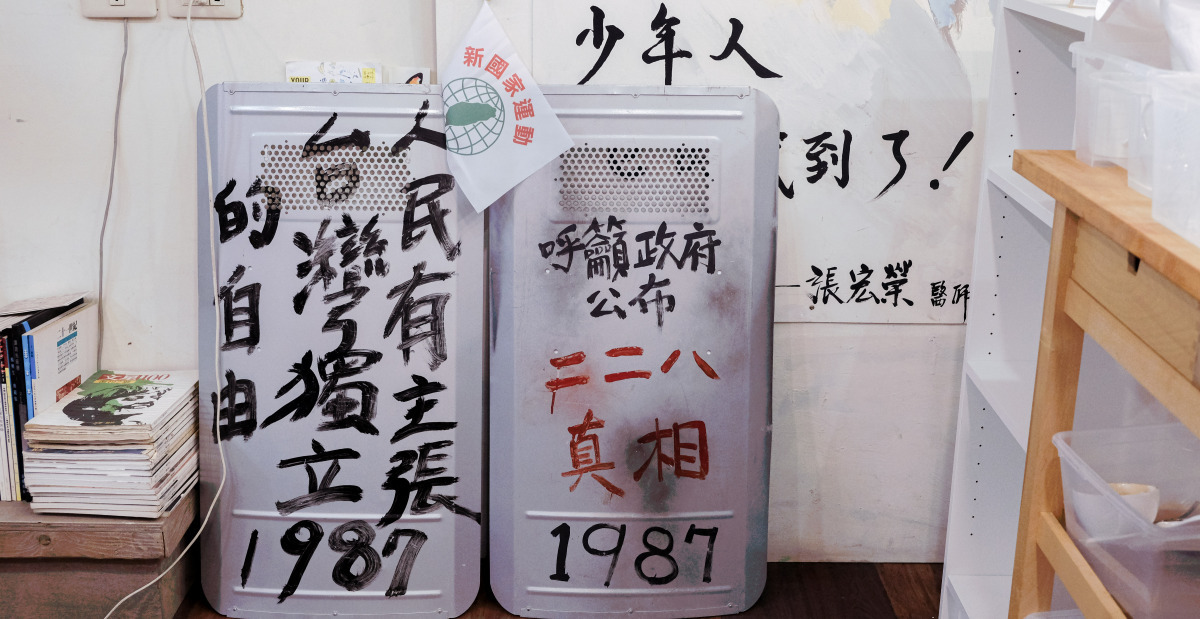 人民有主張
台灣獨立
的自由
1987
新國家運動
呼籲政府
公布
二二八
真相
1987
少年人
到了！
—張宏榮 醫師
YOUR